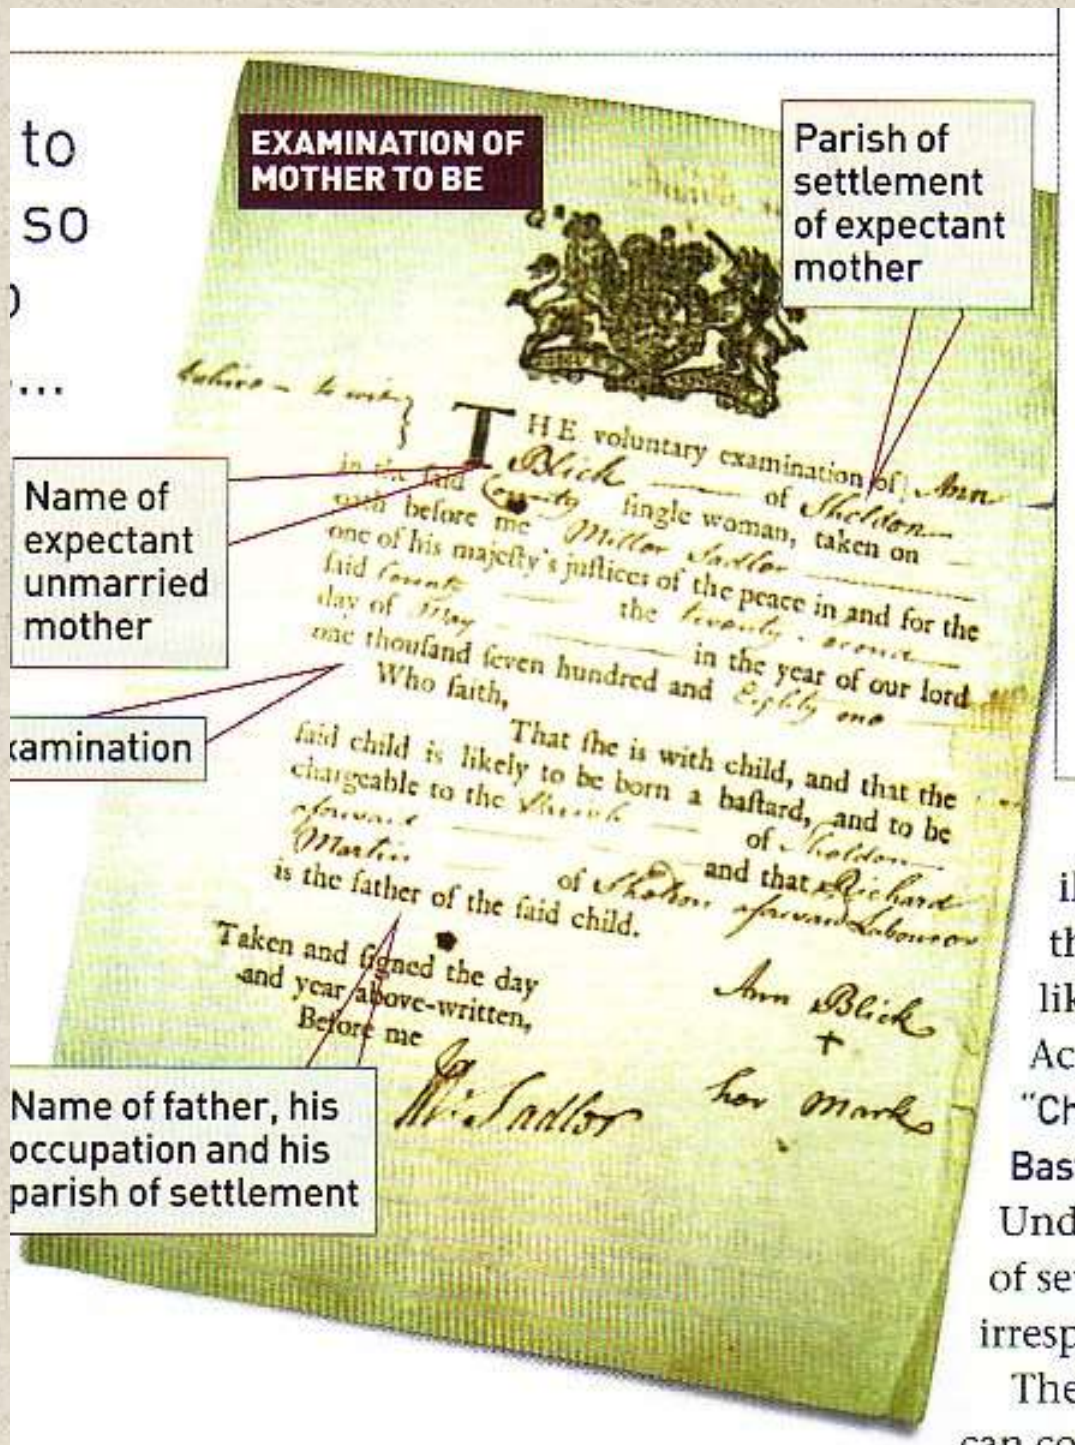 to
so
...
EXAMINATION OF
MOTHER TO BE
Parish of
settlement
of expectant
mother
Name of
expectant
unmarried
mother
xamination
Name of father, his
occupation and his
parish of settlement
to wit}
THE voluntary examination of Ann
Blick of Sheldon
in the ſaid County ſingle woman, taken on
oath before me Miller Sadler
one of his majeſty's juſtices of the peace in and for the
ſaid County the twenty
day of May in the year of our lord
one thouſand ſeven hundred and Eighty one
Who ſaith,
That ſhe is with child, and that the
ſaid child is likely to be born a baſtard, and to be
chargeable to the of Sheldon
and that Richard
Martin of Labourer
is the father of the ſaid child.
Taken and ſigned the day
and year above-written,
Before me
Sadler
Ann Blick
+
her mark
il
th
lik
Ac
"Ch
Bas
Und
of se
irresp
The
can co